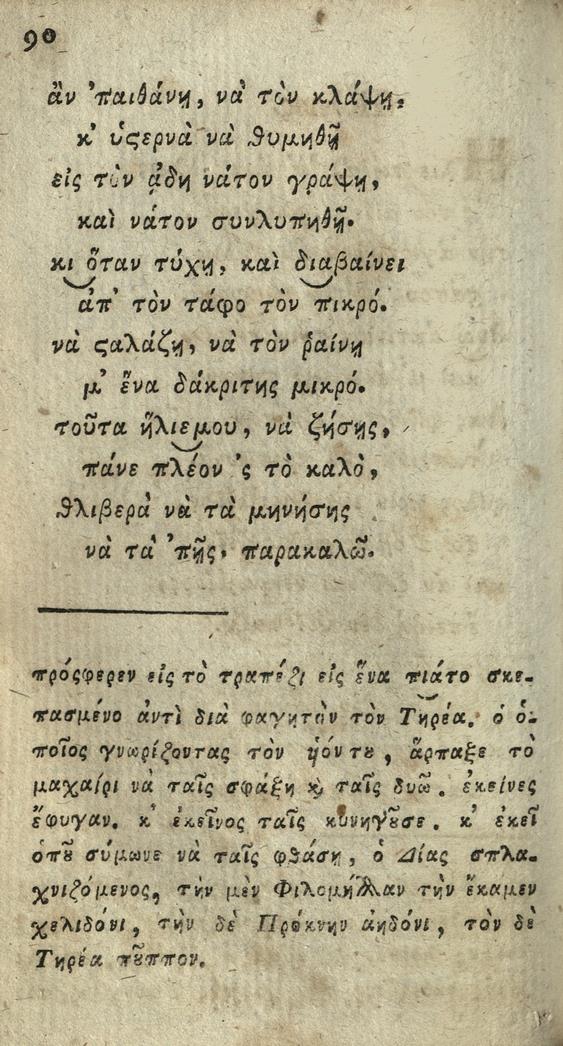 90
ἂν 'παιθάνῃ, νὰ τὸν κλάψῃ.
κ' ὑϛερνὰ νὰ θυμηθῇ
εἰς τὸν ᾅδη νάτον γράψῃ,
καὶ νάτον συνλυπηθῇ.
κι ὅταν τύχῃ, καὶ διαβαίνει
ἀπ' τὸν τάφο τὸν πικρό.
νὰ ϛαλάζῃ, νὰ τὸν ῥαίνῃ
μ' ἕνα δάκριτης μικρό.
τοῦτα ἥλιεμου, νὰ ζήσῃς,
πάνε πλέον 'ς τὸ καλὸ,
θλιβερὰ νὰ τὰ μηνήσῃς
νὰ τὰ 'πῇς. παρακαλῶ.
πρόσφερεν εἰς τὸ τραπέζι εἰς ἕνα πιάτο σκε-
πασμένο ἀντὶ διὰ φαγητὸν τὸν Τηρέα. ὁ ὁ-
ποῖος γνωρίζοντας τὸν ὑόν τȣ, ἅρπαξε τὸ
μαχαίρι νὰ ταῖς σφάξῃ ϗ ταῖς δυῶ. ἐκείνες
ἔφυγαν. κ' ἐκεῖνος ταῖς κυνηγȣ͂σε. κ' ἐκεῖ
ὁπȣ͂ σύμωνε νὰ ταῖς φθάσῃ, ὁ Δίας σπλα-
χνιζόμενος, τὴν μὲν Φιλομήλαν τὴν ἔκαμεν
χελιδόνι, τὴν δὲ Πρόκνην ἀηδόνι, τὸν δὲ
Τηρέα πȣ͂ππον.